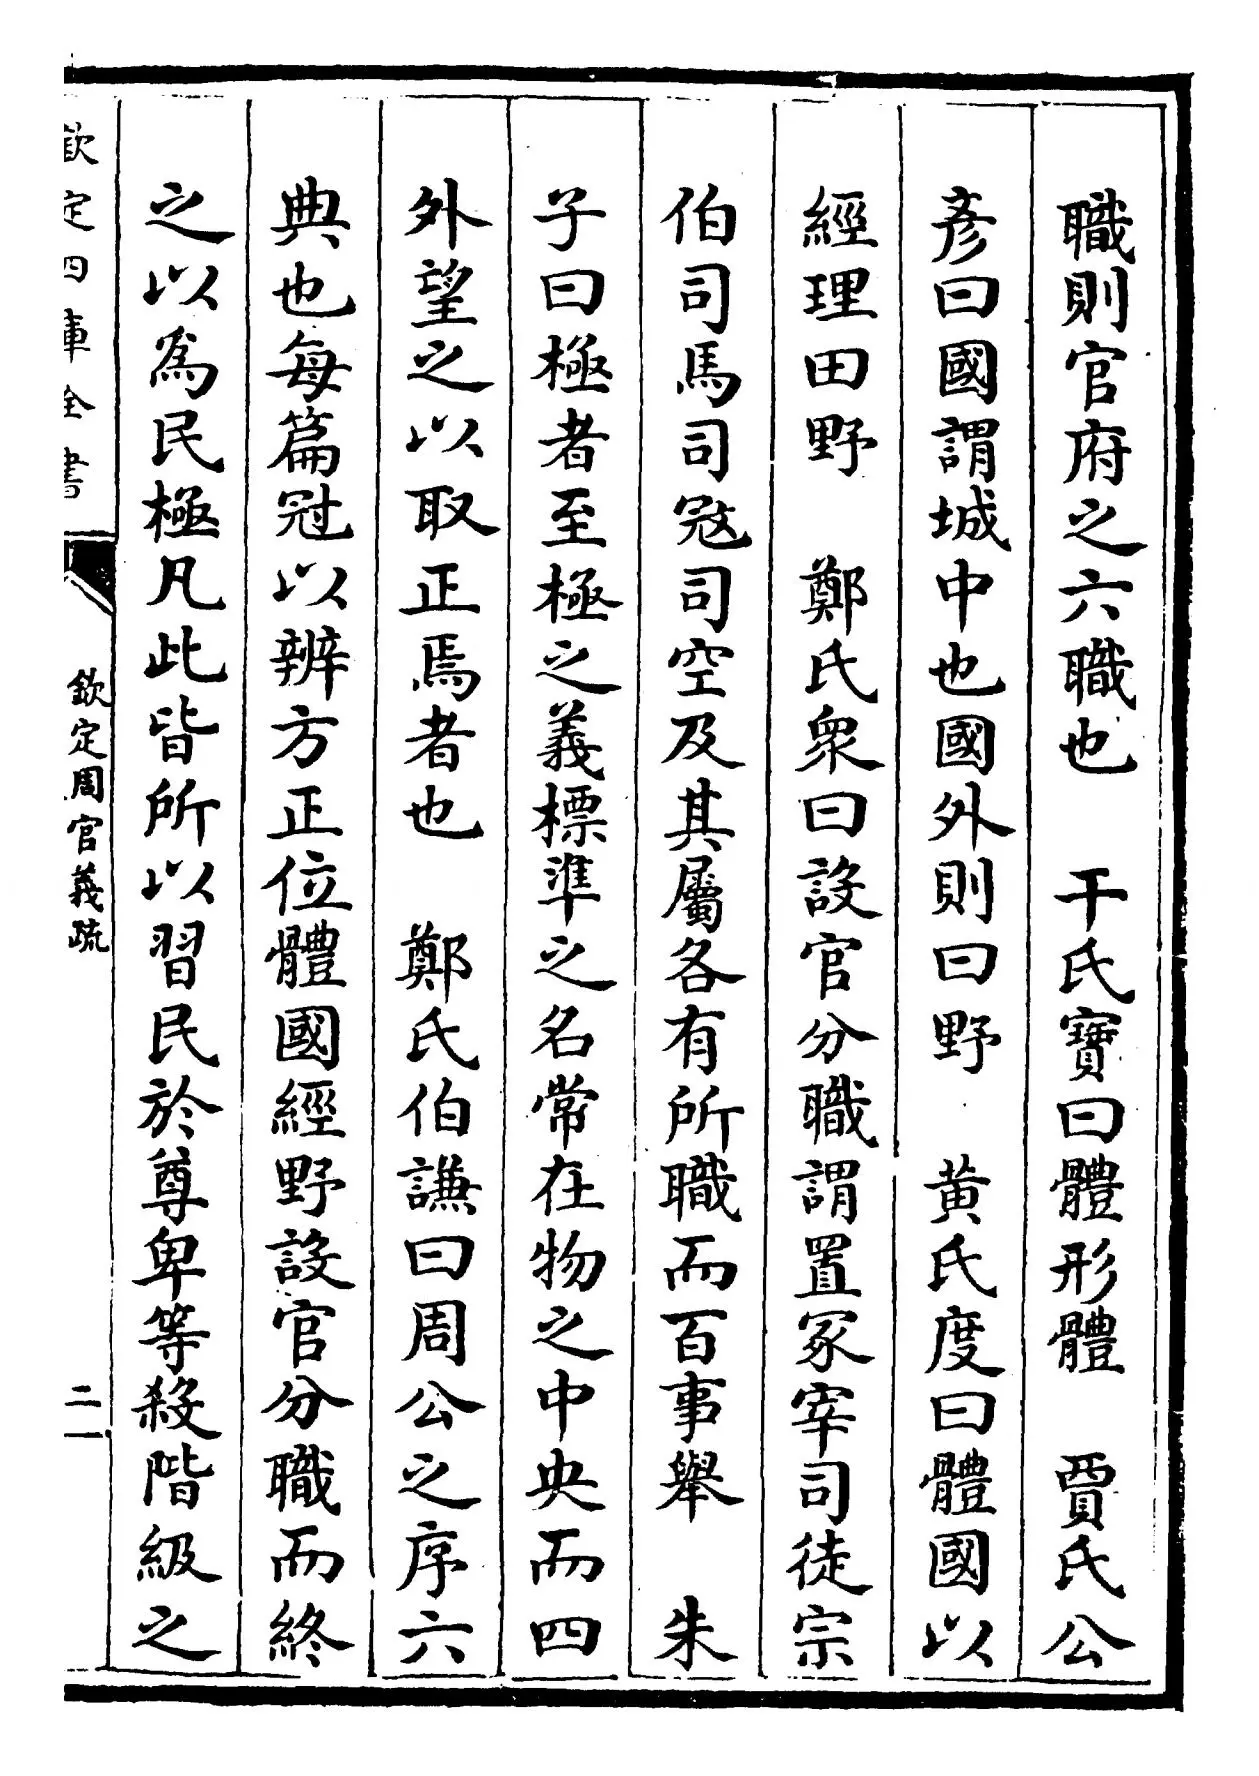 職則官府之六職也　干氏寶曰體形體　賈氏公
彥曰國謂城中也國外則曰野　黄氏度曰體國以
經理田野　鄭氏衆曰設官分職謂置冢宰司徒宗
伯司馬司冦司空及其屬各有所職而百事舉　朱
子曰極者至極之義標準之名常在物之中央而四
外望之以取正焉者也　鄭氏伯謙曰周公之序六
典也每篇冠以辨方正位體國經野設官分職而終
之以為民極凡此皆所以習民於尊卑等殺階級之
欽定四庫全書
欽定周官義疏
二